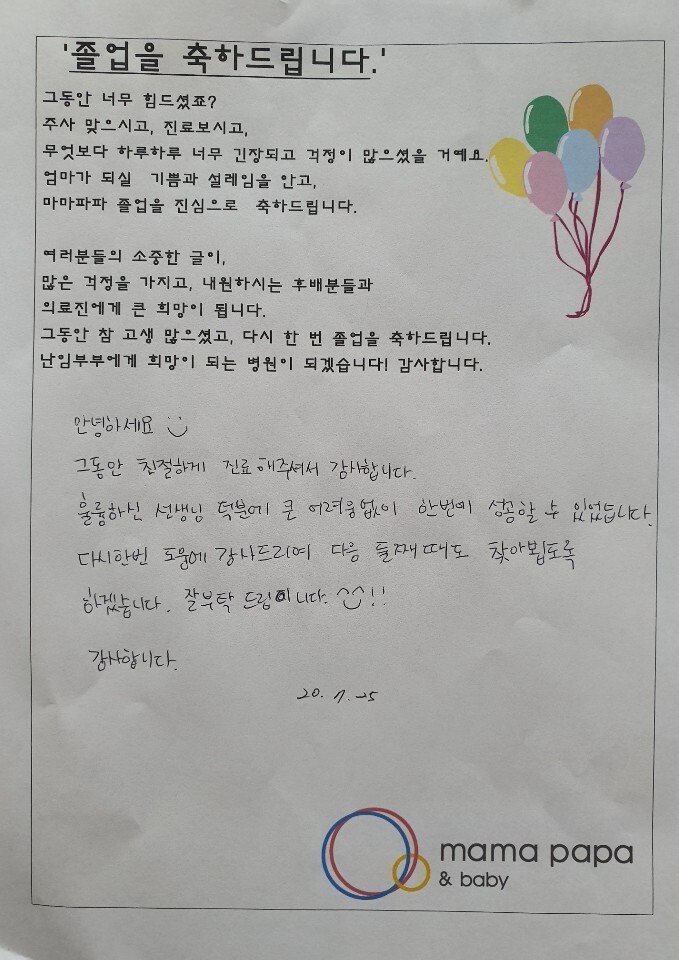 '졸업을 축하드립니다.'
그동안 너무 힘드셨죠?
주사 맞으시고, 진료보시고,
무엇보다 하루하루 너무 긴장되고 걱정이 많으셨을 거예요.
엄마가 되실 기쁨과 설레임을 안고,
마마파파 졸업을 진심으로 축하드립니다.
여러분들의 소중한 글이,
많은 걱정을 가지고, 내원하시는 후배분들과
의료진에게 큰 희망이 됩니다.
그동안 참 고생 많으셨고, 다시 한 번 졸업을 축하드립니다.
난임부부에게 희망이 되는 병원이 되겠습니다! 감사합니다.
안녕하세요
그동안 친절하게 진료해주셔서 감사합니다.
훌륭하신 선생님 덕분에 큰 어려움없이 한번에 성공할 수 있었습니다.
다시한번 도움에 감사드리며 다음 둘째때도 찾아뵙도록
하겠습니다. 잘부탁 드립니다. ^^!!
감사합니다.
20. 7. 25
mama papa
& baby